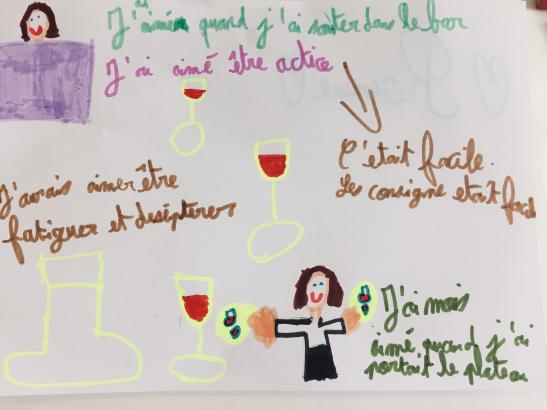 J'ai aimé quand j'ai sauter dans le bar
J'ai aimé être actice
C'était facile.
Les consigne etait facil
J'avais aimer être
fatiguer et desépteres
J'ai mais
aimé quand j'ai
portait le plateau